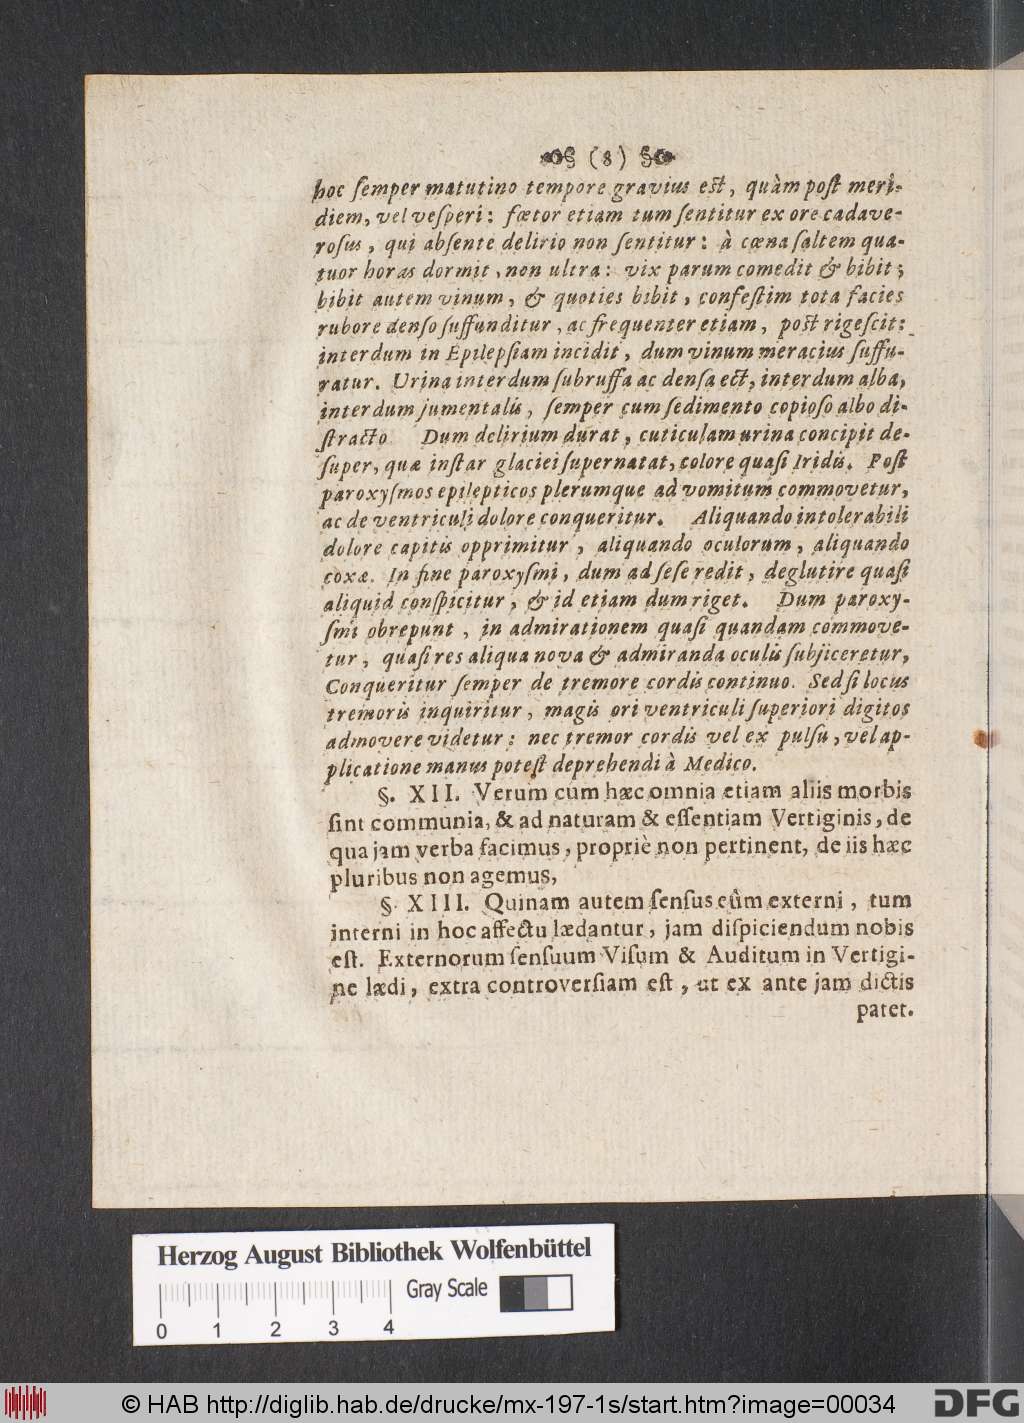 (8)
hoc ſemper matutino tempore gravius eſt, quàm poſt meri-
diem, vel veſperi: fœtor etiam tum ſentitur ex ore cadave-
roſus, qui abſente delirio non ſentitur: à cœna ſaltem qua-
tuor horas dormit, non ultra: vix parum comedit & bibit;
bibit autem vinum, & quoties bibit, confeſtim tota facies
rubore denſo ſuffunditur, ac frequenter etiam, poſt rigeſcit:
interdum in Epilepſiam incidit, dum vinum meracius ſuffu-
ratur. Urina interdum ſubruffa ac denſa eſt, interdum alba,
interdum jumentalis, ſemper cum ſedimento copioſo albo di-
ſtracto Dum delirium durat, cuticulam urina concipit de-
ſuper, quæ inſtar glaciei ſupernatat, colore quaſi Iridis. Poſt
paroxyſmos epilepticos plerumque ad vomitum commovetur,
ac de ventriculi dolore conqueritur. Aliquando intolerabili
dolore capitis opprimitur, aliquando oculorum, aliquando
coxæ. In fine paroxyſmi, dum ad ſeſe redit, deglutire quaſi
aliquid conſpicitur, & id etiam dum riget. Dum paroxy-
ſmi obrepunt, in admirationem quaſi quandam commove-
tur, quaſi res aliqua nova & admiranda oculis ſubjiceretur,
Conqueritur ſemper de tremore cordis continuo. Sed ſi locus
tremoris inquiritur, magis ori ventriculi ſuperiori digitos
admovere videtur: nec tremor cordis vel ex pulſu, vel ap-
plicatione manus poteſt deprehendi à Medico.
§. XII. Verum cum hæc omnia etiam aliis morbis
ſint communia, & ad naturam & eſſentiam Vertiginis, de
qua jam verba facimus, propriè non pertinent, de iis hæc
pluribus non agemus,
§. XIII. Quinam autem ſenſus cùm externi, tum
interni in hoc affectu lædantur, jam diſpiciendum nobis
eſt. Externorum ſenſuum Viſum & Auditum in Vertigi-
ne lædi, extra controverſiam eſt, ut ex ante jam dictis
patet.
Herzog August Bibliothek Wolfenbüttel
Gray Scale
0 1 2 3 4
© HAB http://diglib.hab.de/drucke/mx-197-1s/start.htm?image=00034
DFG